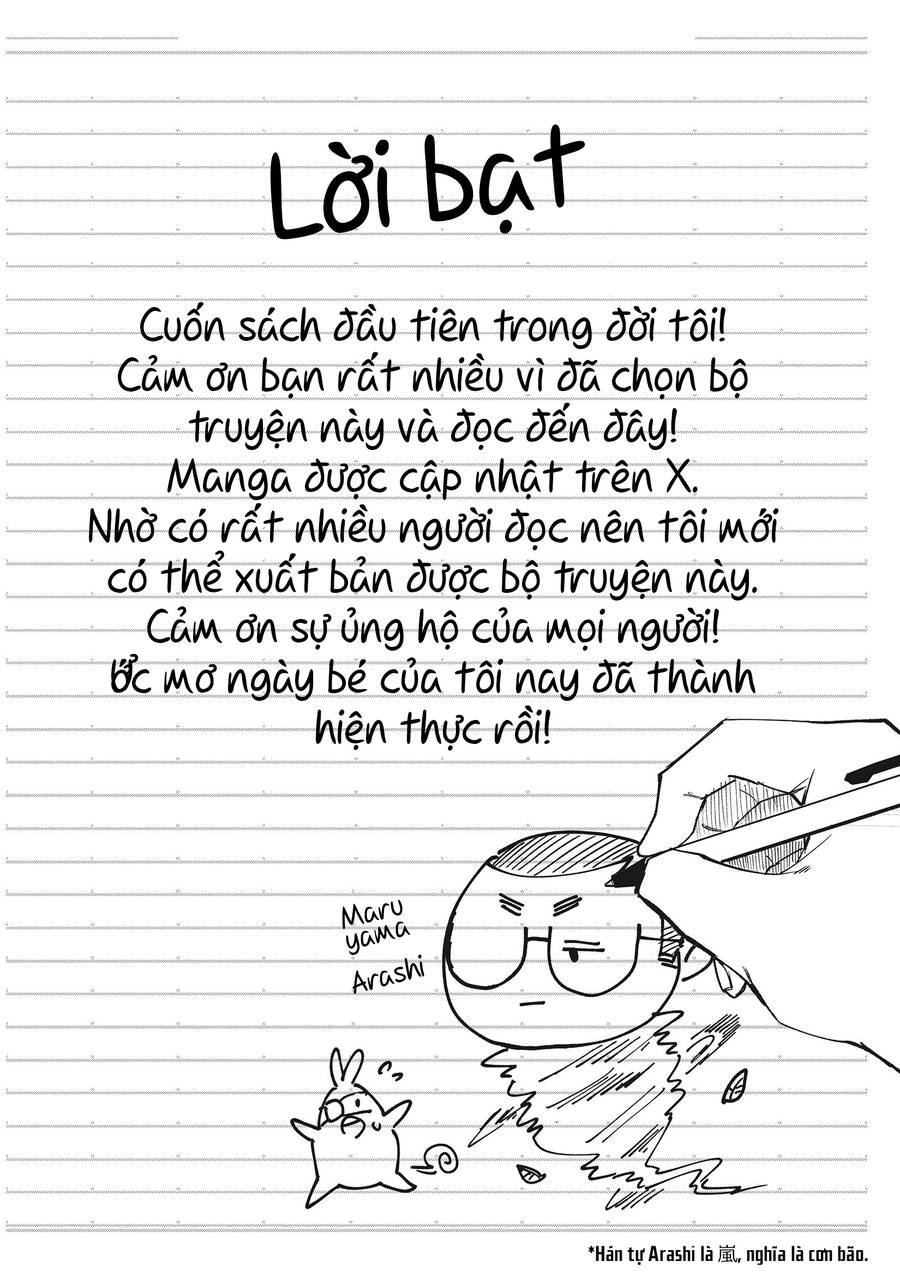 Lời bạt
Cuốn sách đầu tiên trong đời tôi!
Cảm ơn bạn rất nhiều vì đã chọn bộ
truyện này và đọc đến đây!
Manga được cập nhật trên X.
Nhờ có rất nhiều người đọc nên tôi mới
có thể xuất bản được bộ truyện này.
Cảm ơn sự ủng hộ của mọi người!
Ước mơ ngày bé của tôi nay đã thành
hiện thực rồi!
Maru
yama
Arashi
*Hán tự Arashi là 嵐, nghĩa là cơn bão.